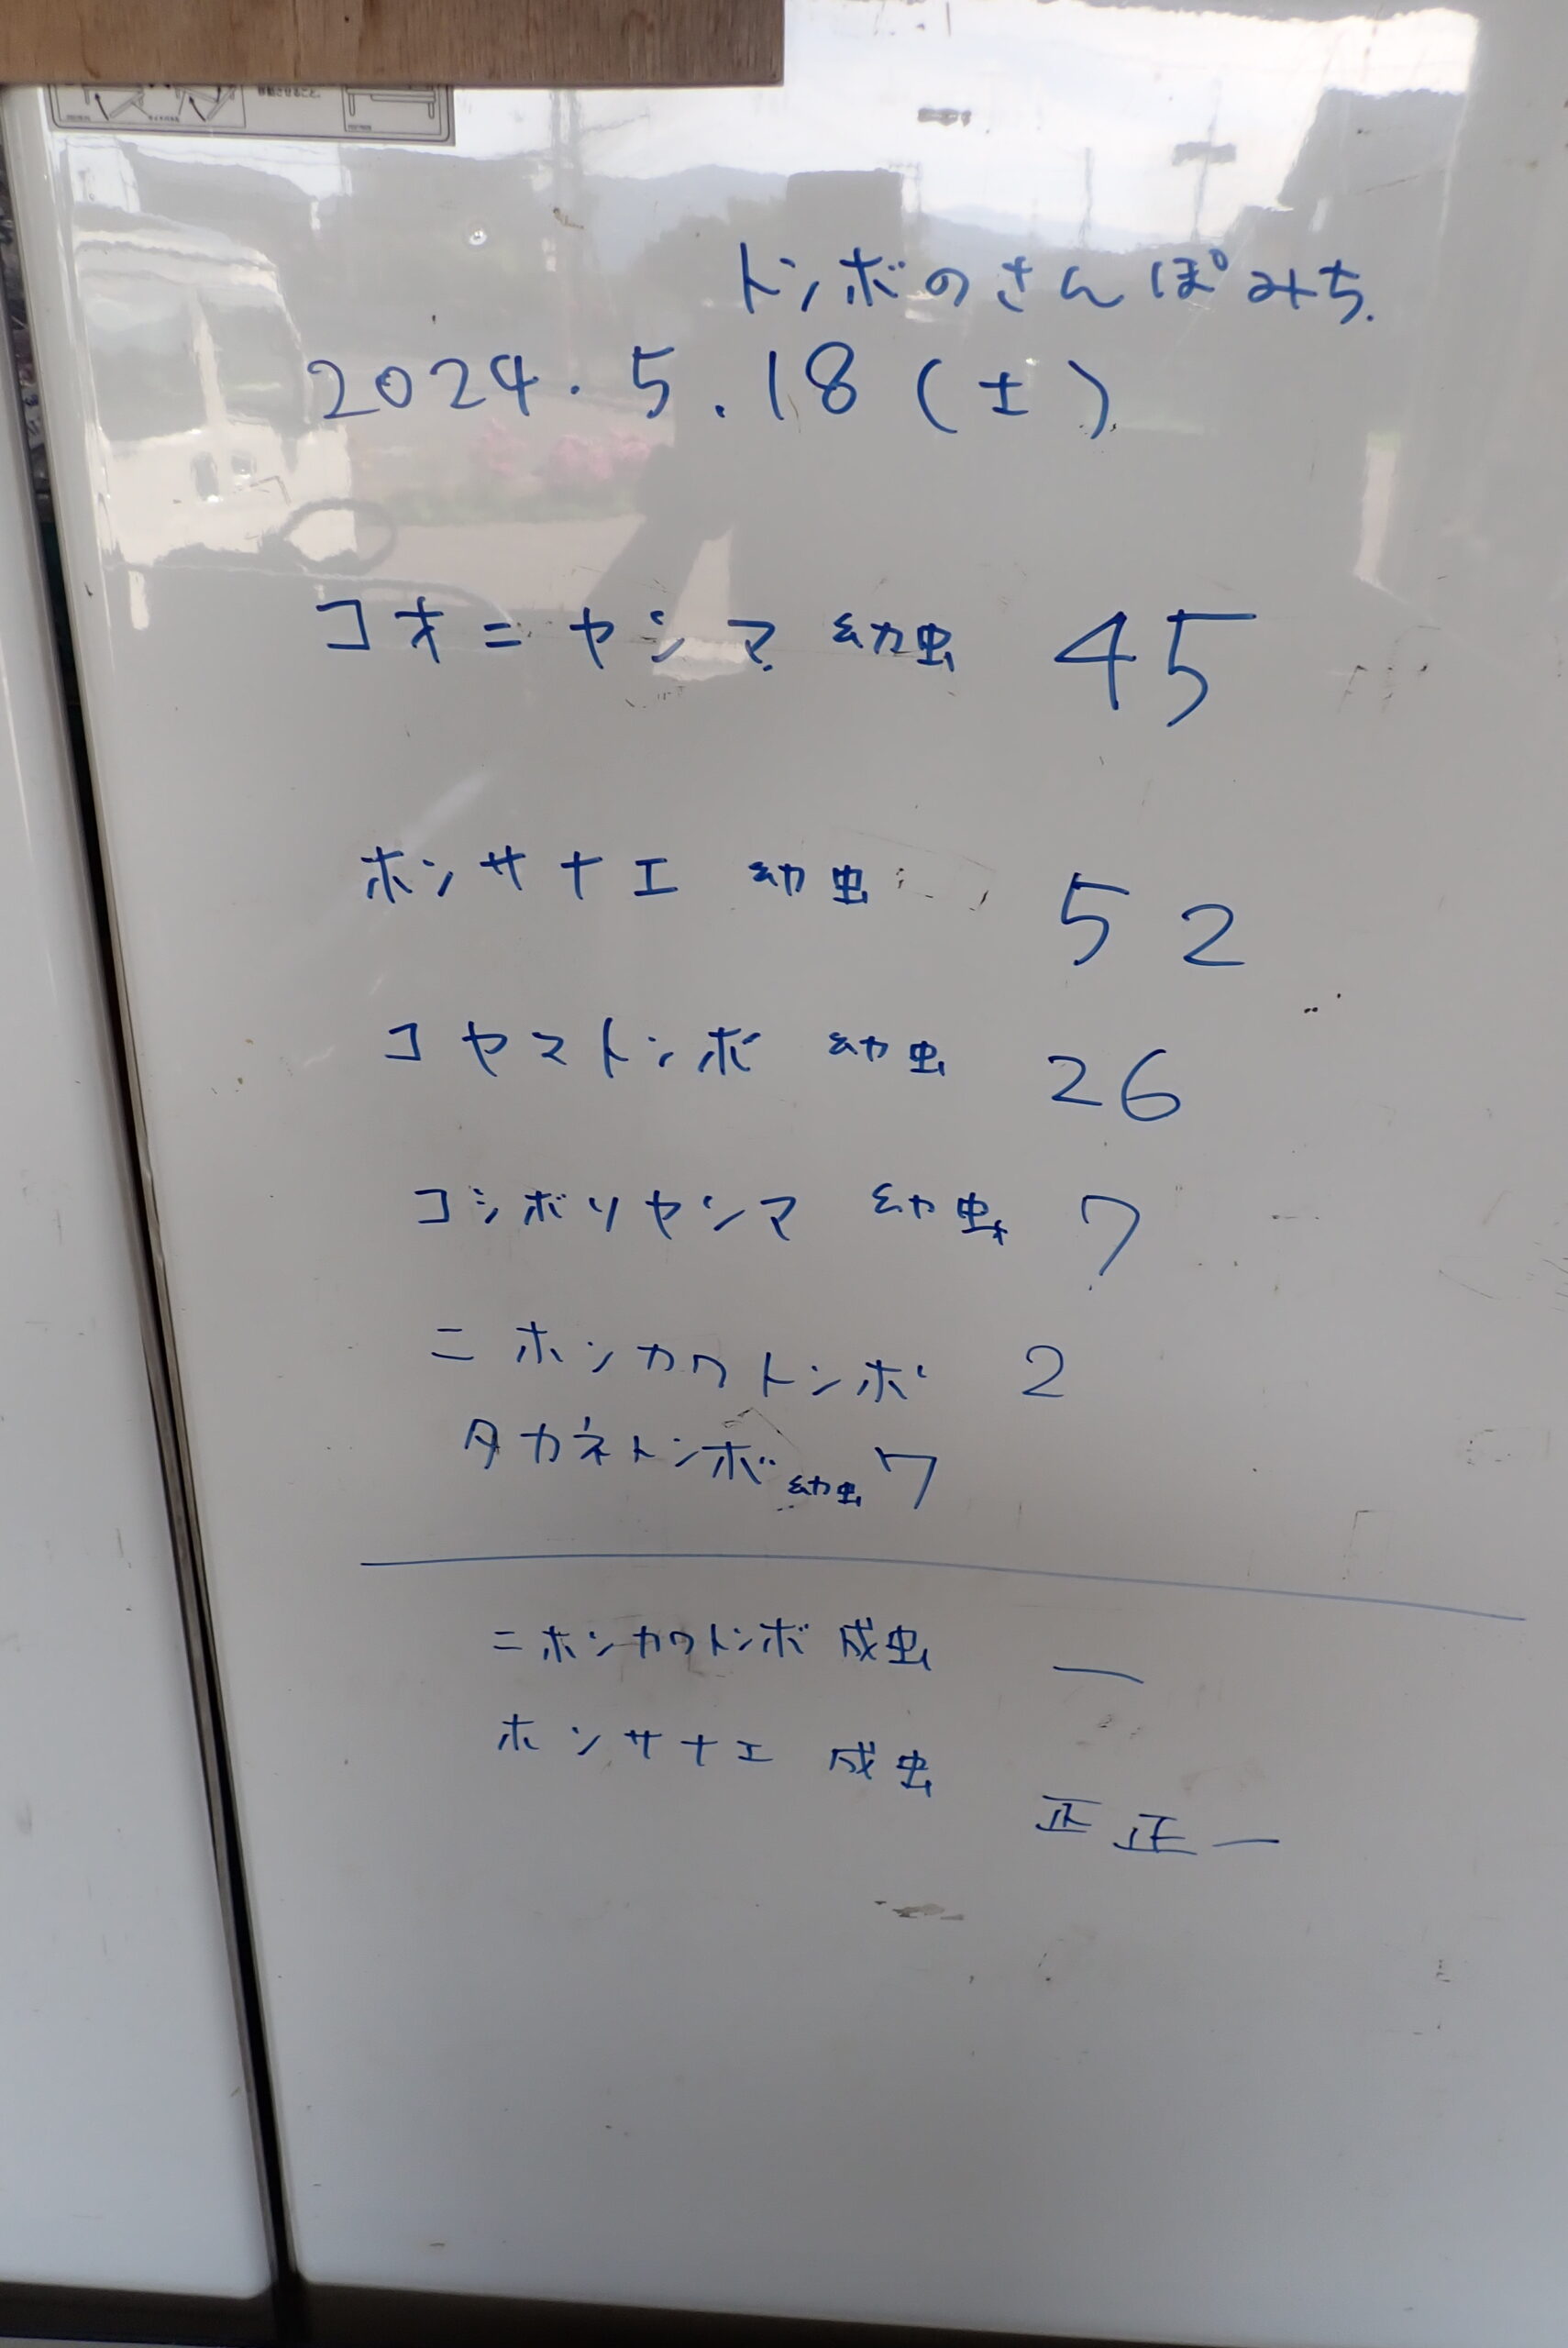 移動させること。
トンボのさんぽみち.
2024.5.18(土)
コオニヤンマ 幼虫 45
ホンサナエ 幼虫 52
コヤマトンボ 幼虫 26
コシボソヤンマ 幼虫 7
ニホンカワトンボ 2
タカネトンボ 幼虫 7
ニホンカワトンボ 成虫 一
ホンサナエ 成虫 正正一